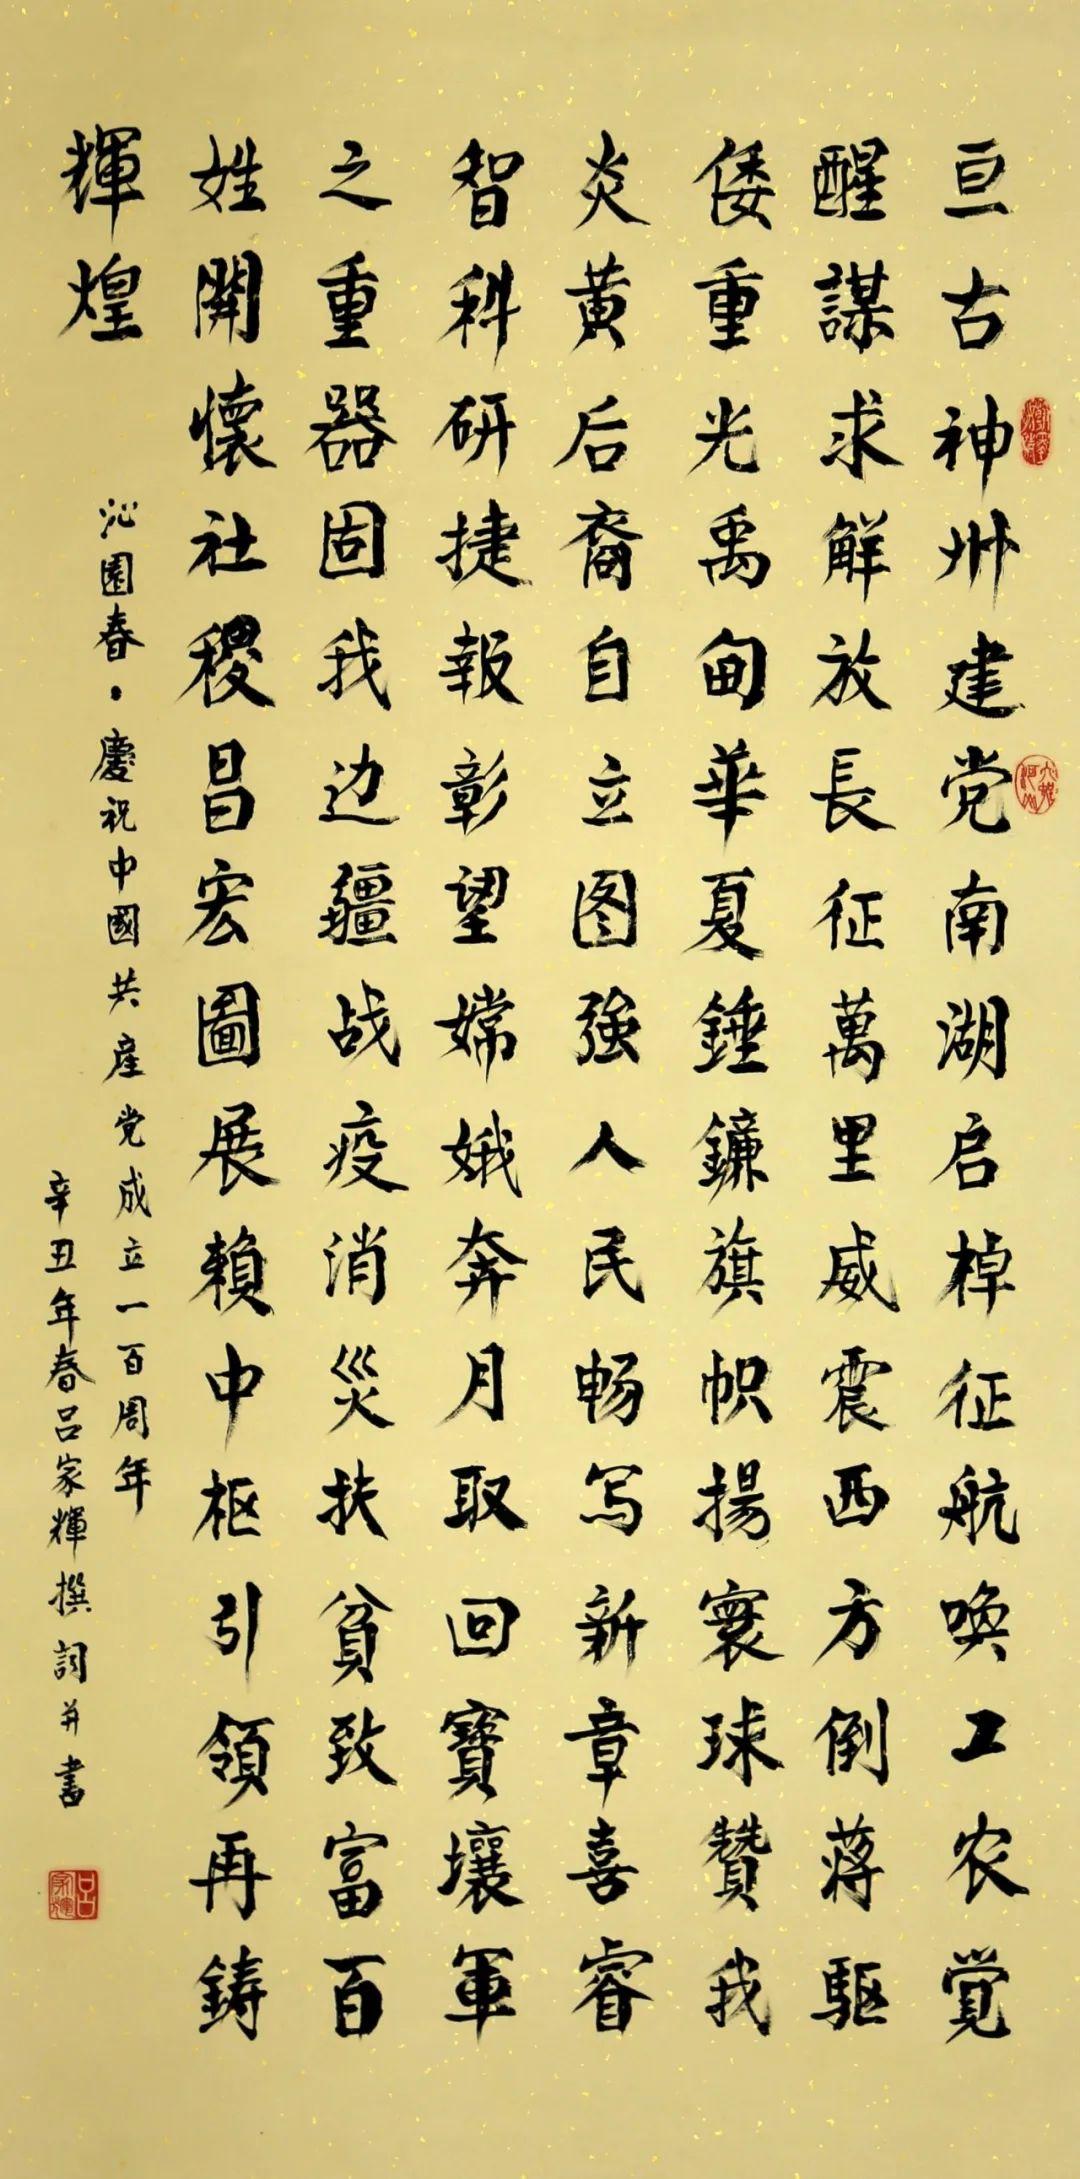 亘古神州建党南湖启棹征航唤工农觉
醒謀求解放長征萬里威震西方倒蒋驱
倭重光禹甸華夏錘鐮旗帜揚寰球贊我
炎黄后裔自立图强人民畅写新章喜睿
智科研捷報彰望嫦娥奔月取回寶壤軍
之重器固我边疆战疫消災扶貧致富百
姓開懷社稷昌宏圖展賴中枢引領再鋳
輝煌
沁園春·慶祝中國共産党成立一百周年
辛丑年春吕家輝撰詞并書